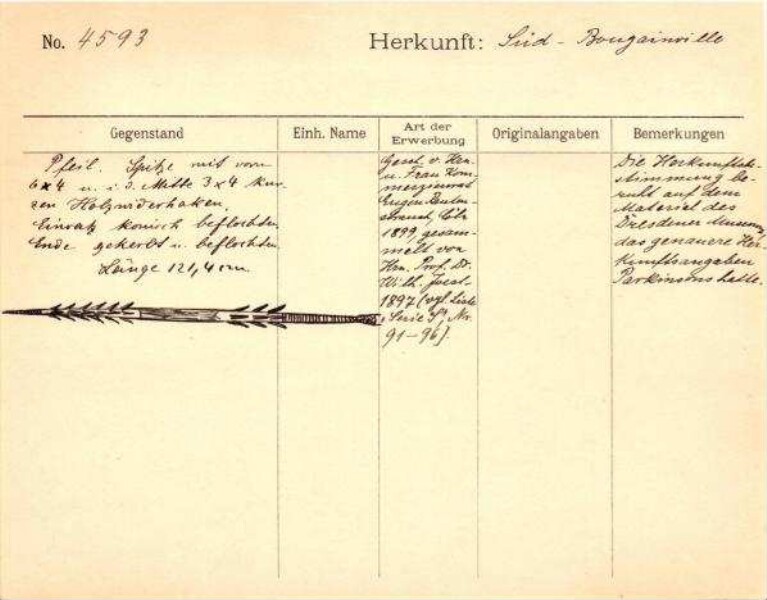 No. 4593
Herkunft: Süd - Bougainville
Gegenstand
Einh. Name
Art der
Erwerbung
Originalangaben
Bemerkungen
Pfeil. Spitze mit vorn
6x4 u. i. d. Mitte 3x4 kur-
zen Holzwiderhaken.
Einsatz konisch beflochten.
Ende gekerbt u. beflochten.
Länge 121,4 cm
Gesch. v. Hrn.
u. Frau Kom-
merzienrat
Eugen Rauten-
strauch, Cöln
1899, gesam-
melt von
Hrn. Prof. Dr.
Wilh. Joest
1897 (vgl. Liste
Serie Nr.
91-96).
Die Herkunftsbe-
stimmung be-
ruht auf dem
Material des
Dresdener Museums,
das genauere Her-
kunftsangaben
Parkinsons hatte.